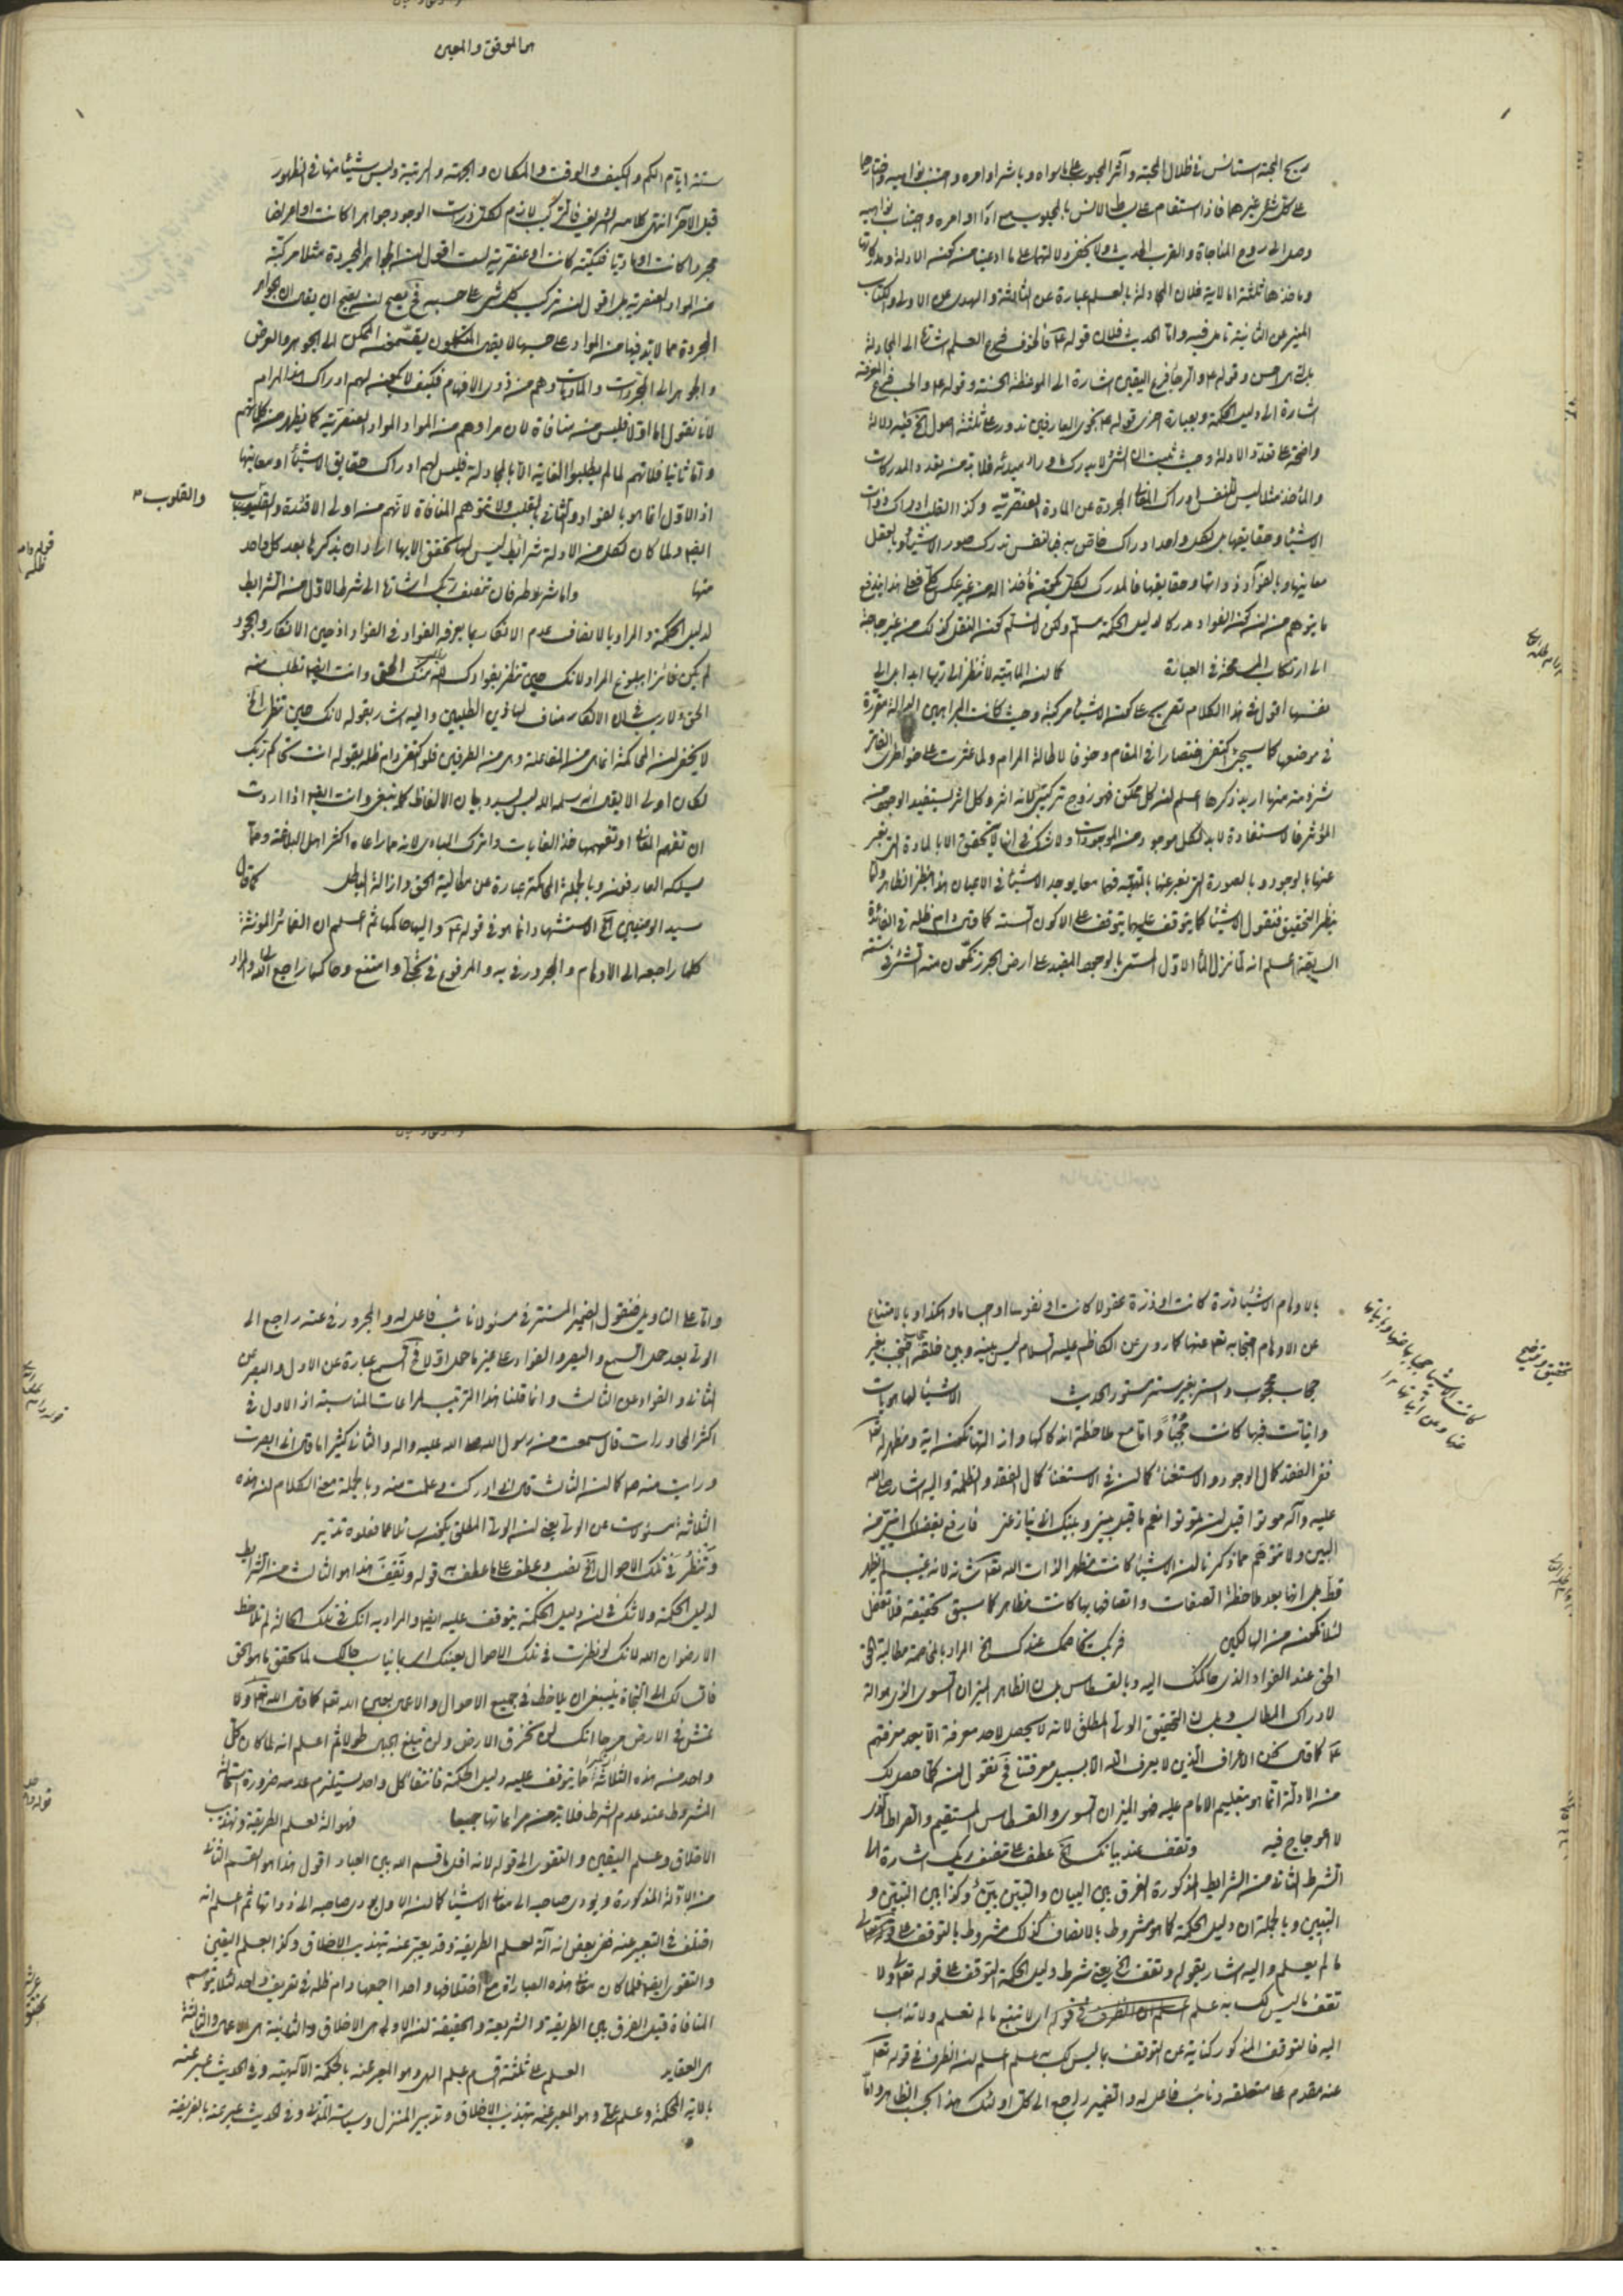 هو الموفق والمعين
ريح المحبة استانس في ظلال المحبة وآثر المحبوب على ما سواه وباشر اوامره واجتنب نواهيه واختارها
على كل شئ غيرهما فاذا استقام على بساط الانس بالمحبوب مع اداء اوامره واجتناب نواهيه
وصل الى روح المناجاة والقرب الحديث ولا يخفى دلالتها على ما ادعينا من كون الادلة
وماخذها ثلثة اما الاية فلان المجادلة بالعلم عبارة عن الثالثة والهدى عن الاولى والكتاب
المنير عن الثانية تامل فيه واما الحديث فلان قوله ع فالخوف فرع العلم اشارة الى المجادلة
بالتي هي احسن وقوله ع والرجا فرع اليقين اشارة الى الموعظة الحسنة وقوله ع والحب فرع المعرفة
اشارة الى دليل الحكمة وبعبارة اخرى قوله ع نجوى العارفين تدور على ثلثة اصول الخ فيه دلالة
واضحة على تعدد الادلة وحيث ثبت ان الشئ لا يدرك ما وراء مبدئه فلا بد من تعدد المدركات
والماخذ مثلا ليس للنفس ادراك المعاني المجردة عن المادة العنصرية وكذا العقل ادراك ذوات
الاشياء وحقايقها بل لكل واحد ادراك خاص به فبالنفس تدرك صور الاشياء وبالعقل
معانيها وبالفؤاد ذواتها وحقايقها فالمدرك
ما يتوهم من ان كون الفؤاد مدركا لدليل الحكمة مسلم ولكن لا نسلم كون النقل كذلك من غير حاجة
الى ارتكاب المسامحة في العبارة كما ان الماهية لا تنظر الى ربها ابدا بل الى
نفسها اقول في هذا الكلام تصريح على كون الاشياء مركبة وحيث كانت البراهين الدالة مقررة
في موضعها كما سيجئ اكتفى اختصارا في المقام وخوفا لاطالة المرام ولما عثرت على خواطري الفاتر
شرذمة منها اريد ذكرها اعلم ان كل ممكن فهو زوج تركيبي لانه اثر وكل اثر يستفيد الوجود من
المؤثر فالاستفادة لابد لكل موجود من الموجودات ولا شك في انها لا تتحقق الا بالمادة التي نعبر
عنها بالوجود وبالصورة التي نعبر عنها بالماهية فبهما معا يوجد الاشياء في الاعيان هذا بنظر الظاهر واما
بنظر التحقيق فنقول الاشياء كما يتوقف عليهما يتوقف على الاكوان الستة كما قال دام ظله في الفائدة
السابقة اعلم انه لما نزل الماء الاول المسمى بالوجود المقيد على ارض الجرز تكون منه الشئ في ستة
ستة ايام الكم والكيف والوقت والمكان والجهة والرتبة وليس شيئا منها في الظهور
قبل الآخر انتهى كلامه الشريف فالتركيب لازم لكل ذرات الوجود جواهرا كانت او اعراضا
مجردا كانت او ماديا فلكية كانت او عنصرية لست اقول ان الجواهر المجردة مثلا مركبة
من المواد العنصرية بل اقول ان تركب كل شئ على حسبه فح يصح ان يقال ان الجواهر
المجردة مما لابد فيها من المواد على حسبها لا يقال المتكلمون يقسمون الممكن الى الجوهر والعرض
والجوهر الى المجردات والماديات وهم من ذوي الافهام فكيف لا يمكن لهم ادراك هذا المرام
لانا نقول اما اولا فليس منه منافاة لان مرادهم من المواد المواد العنصرية كما يظهر من كلماتهم
واما ثانيا فلانهم لما لم يطلبوا الغاية الا بالمجادلة فليس لهم ادراك حقايق الاشياء او معانيها
اذ الاول انما هو بالفؤاد والثاني بالقلب ولا تتوهم المنافاة لانهم من اولي الافئدة والقلوب
والقلوب
ايضا ولما كان لكل من الادلة شرايط ليس لها تحقق الا بها اراد ان يذكرها بعد كل واحد
منها واما شرطه فان تنصف ربك اشارة الى شرط الاول من الشرايط
لدليل الحكمة والمراد بالانصاف عدم الانكار بما يعرفه الفؤاد في الفؤاد اذ حين الانكار والجحود
لم يكن فائزا ببلوغ المراد لانك حين تنظر بفؤادك الحق وانت ايضا تطلب منه
الحق ولا ريب في ان الانكار مناف لهاذين الطلبين واليه اشار بقوله لانك حين تنظر الخ
لا يخفى ان المحاكمة انما هي من المفاعلة وهي من الطرفين فلو اكتفى دام ظله بقوله انت تحاكم ربك
لكان اولى الا يقال انه سلمه الله ليس بصدد بيان الالفاظ كما ينبغي وانت ايضا اذا اردت
ان تفهم المعاني او تفهيمها فخذ الغايات واترك المبادي لانه مما راعاه اكثر اهل البلاغة ومما
يسلكه العارفون وبالجملة المحاكمة عبارة عن مطالبة الحق وازالة الباطل كما قال
سيد الوصيين الخ الاستشهاد انما هو في قوله ع واليها حاكمها ثم اعلم ان الضمائر المؤنثة
كلها راجعة الى الاوهام والمجرور في به والمرفوع في تجلى وامتنع وحاكمها راجع الى الله والمراد
بالاوهام الاشياء ذرة كانت او ذرة عقولا كانت او نفوسا او اجساما وهكذا وبالامتناع
عن الاوهام احتجابه تعالى عنها كما روي عن الكاظم عليه السلام ليس بينه وبين خلقه حجاب احتجب بغير
حجاب محجوب واستتر بغير ستر مستور الحديث الاشياء لها هويات
وانيات فبها كانت حجبا واما مع ملاحظة اندكاكها وازالتها تكون اية ومظهر له تعالى
ففي الفقد كمال الوجود والاستغناء كما ان في الاستغناء كمال الفقد والظلمة واليه اشار صلى الله
عليه وآله موتوا قبل ان تموتوا نعم ما قيل بيني وبينك انّي ينازعني فارفع بفضلك انيّ من
البين ولا تتوهم مما ذكرنا ان الاشياء كانت مظهر الذات الله تعالى شانه لانه غيب لم يظهر
قط بل انها بعد ملاحظة الصفات واتصافها بها كانت مظاهر كما سبق تحقيقه فلا تغفل
لئلا تكون من الهالكين فربك يخاصمك عندك الخ المراد بالمخاصمة مطالبة الحق
الحق عند الفؤاد الذي حاكمك اليه وبالقسطاس على الظاهر الميزان السوي الذي هو الة
لادراك المطالب وعلى التحقيق الولي المطلق لانه لا يحصل لاحد معرفة الا بعد معرفتهم
ع كما قال نحن الاعراف الذين لا يعرف الله الا بسبيل معرفتنا فح نقول ان كلما حصل لك
من الادلة انما هو بتعليم الامام عليه السلام فهو الميزان السوي والقسطاس المستقيم والصراط الذي
لا اعوجاج فيه وتقف عند بيانك الخ عطف على تنصف ربك اشارة الى
الشرط الثاني من الشرايط المذكورة الفرق بين البيان والتبيّن بيّن وكذا بين التبين و
التبيين وبالجملة ان دليل الحكمة كما هو مشروط بالانصاف كذلك مشروط بالتوقف على
ما لم يعلم واليه اشار بقوله وتقف الخ يعني شرط دليل الحكمة التوقف على قوله تعالى ولا
تقف ما ليس لك به علم اي لا تتبع ما لم تعلم ولا تذهب
اليه فالتوقف المذكور كناية عن التوقف بما ليس لك به علم اعلم ان الظرف في قوله تعالى
عنه مقدم على متعلقه ونائب فاعل له والضمير راجع الى كل اولئك هذا بحسب الظاهر واما
كانت الاشياء حجبا باعتبار
تحقيق وتوضيح
واما على التاويل فنقول الضمير المستتر في مسئولا نائب فاعل له والمجرور في عنه راجع الى
الولي بعد حمل السمع والبصر والفؤاد على غير ما حمل اولا فح السمع عبارة عن الاول والبصر عن
الثاني والفؤاد عن الثالث وانما قلنا هذا الترتيب لمراعات المناسبة اذ الاول في
اكثر المحاورات قال سمعت من رسول الله صلى الله عليه واله والثاني كثيرا ما قال اني ابصرت
ورايت منه ص كما ان الثالث قال اني ادركت وعلمت منه وبالجملة معنى الكلام ان هذه
الثلاثة مسئولات عن الولي يعني ان الولي المطلق يكون سائلا عما فعلوه تدبر
وتنظر في تلك الاحوال الخ نصب وعطف على ما عطف به قوله وتقف هذا هو الثالث من الشرايط
لدليل الحكمة ولا شك في ان دليل الحكمة يتوقف عليه ايضا والمراد به انك في تلك الحالة لم تلاحظ
الا رضوان الله لانك لو نظرت في تلك الاحوال بعينك
فات لك الى النجاة فينبغي ان يلاحظ في جميع الاحوال والاعمال بعين الله تعالى كما قال الله تعالى ولا
تمش في الارض مرحا انك لن تخرق الارض ولن تبلغ الجبال طولا ثم اعلم انه لما كان كل
واحد من هذه الثلاثة مما يتوقف عليه دليل الحكمة فانتفاء كل واحد يستلزم عدمه ضرورة استحالة
المشروط عند عدم الشرط فلا بد من مراعاتها جميعا فهو الة لعلم الطريقة وتهذيب
الاخلاق وعلم اليقين والتقوى الى قوله لانه اقل ما قسم الله بين العباد اقول هذا هو القسم الثاني
من الادلة المذكورة ويؤدي صاحبه الى معاني الاشياء كما ان الاول يؤدي صاحبه الى ذواتها ثم اعلم انه
اختلف في التعبير عنه فعن بعض انه آلة لعلم الطريقة وقد يعبر عنه بتهذيب الاخلاق وكذا بعلم اليقين
والتقوى ايضا فلما كان معاني هذه العبارات مع اختلافها واحدا جمعها دام ظله في تعريف واحد لئلا يتوهم
المنافاة قيل الفرق بين الطريقة والشريعة والحقيقة ان الاولى هي الاخلاق والثانية هي الاعمال والثالثة
هي العقايد العلم على ثلثة اقسام علم الهي وهو المعبر عنه بالحكمة الالهية وفي الحديث عبر عنه
بالاية المحكمة وعلم عملي وهو المعبر عنه بتهذيب الاخلاق وتدبير المنزل وسياسة المدن وفي الحديث عبر عنه بالفريضة